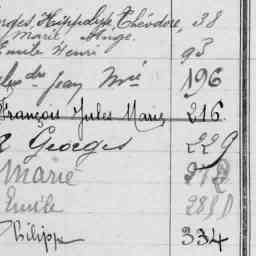 Hippolyte Théodore, 38
Marie Ange.
Emile Henri 93
Jean Mie 196
François Jules Marie 216
Georges 229
Marie
Emile
Philippe 334